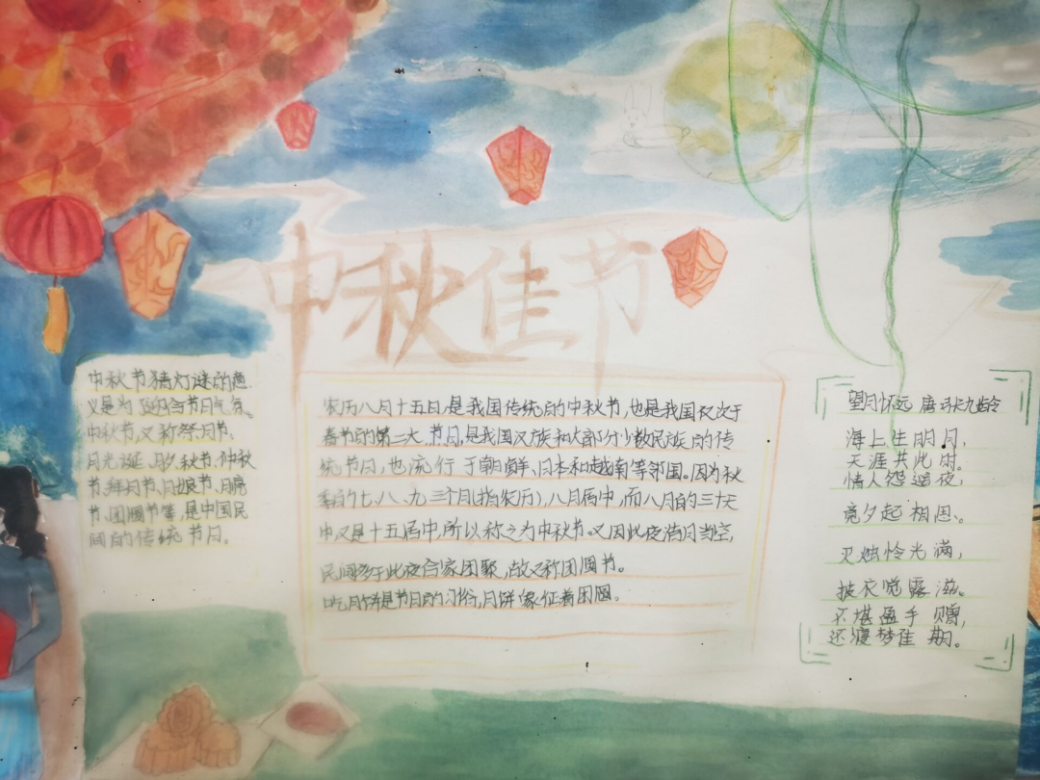 中秋佳节
中秋节猜灯谜的意
义是为了的合节日气氛。
中秋节,又称祭月节、
月光诞、月夕、秋节、仲秋
节、拜月节、月娘节、月亮
节、团圆节等,是中国民
间的传统节日。
农历八月十五日,是我国传统的中秋节,也是我国仅次于
春节的第二大节日,是我国汉族和大部分少数民族的传
统节日,也流行于朝鲜、日本和越南等邻国。因为秋
季的七、八、九三个月(指农历),八月居中,而八月的三十天
中又是十五居中,所以称之为中秋节。又因此夜满月当空,
民间多于此夜合家团聚,故又称团圆节。
吃月饼是节日的习俗,月饼象征着团圆。
望月怀远 唐 张九龄
海上生明月,
天涯共此时。
情人怨遥夜,
竟夕起相思。
灭烛怜光满,
披衣觉露滋。
不堪盈手赠,
还寝梦佳期。